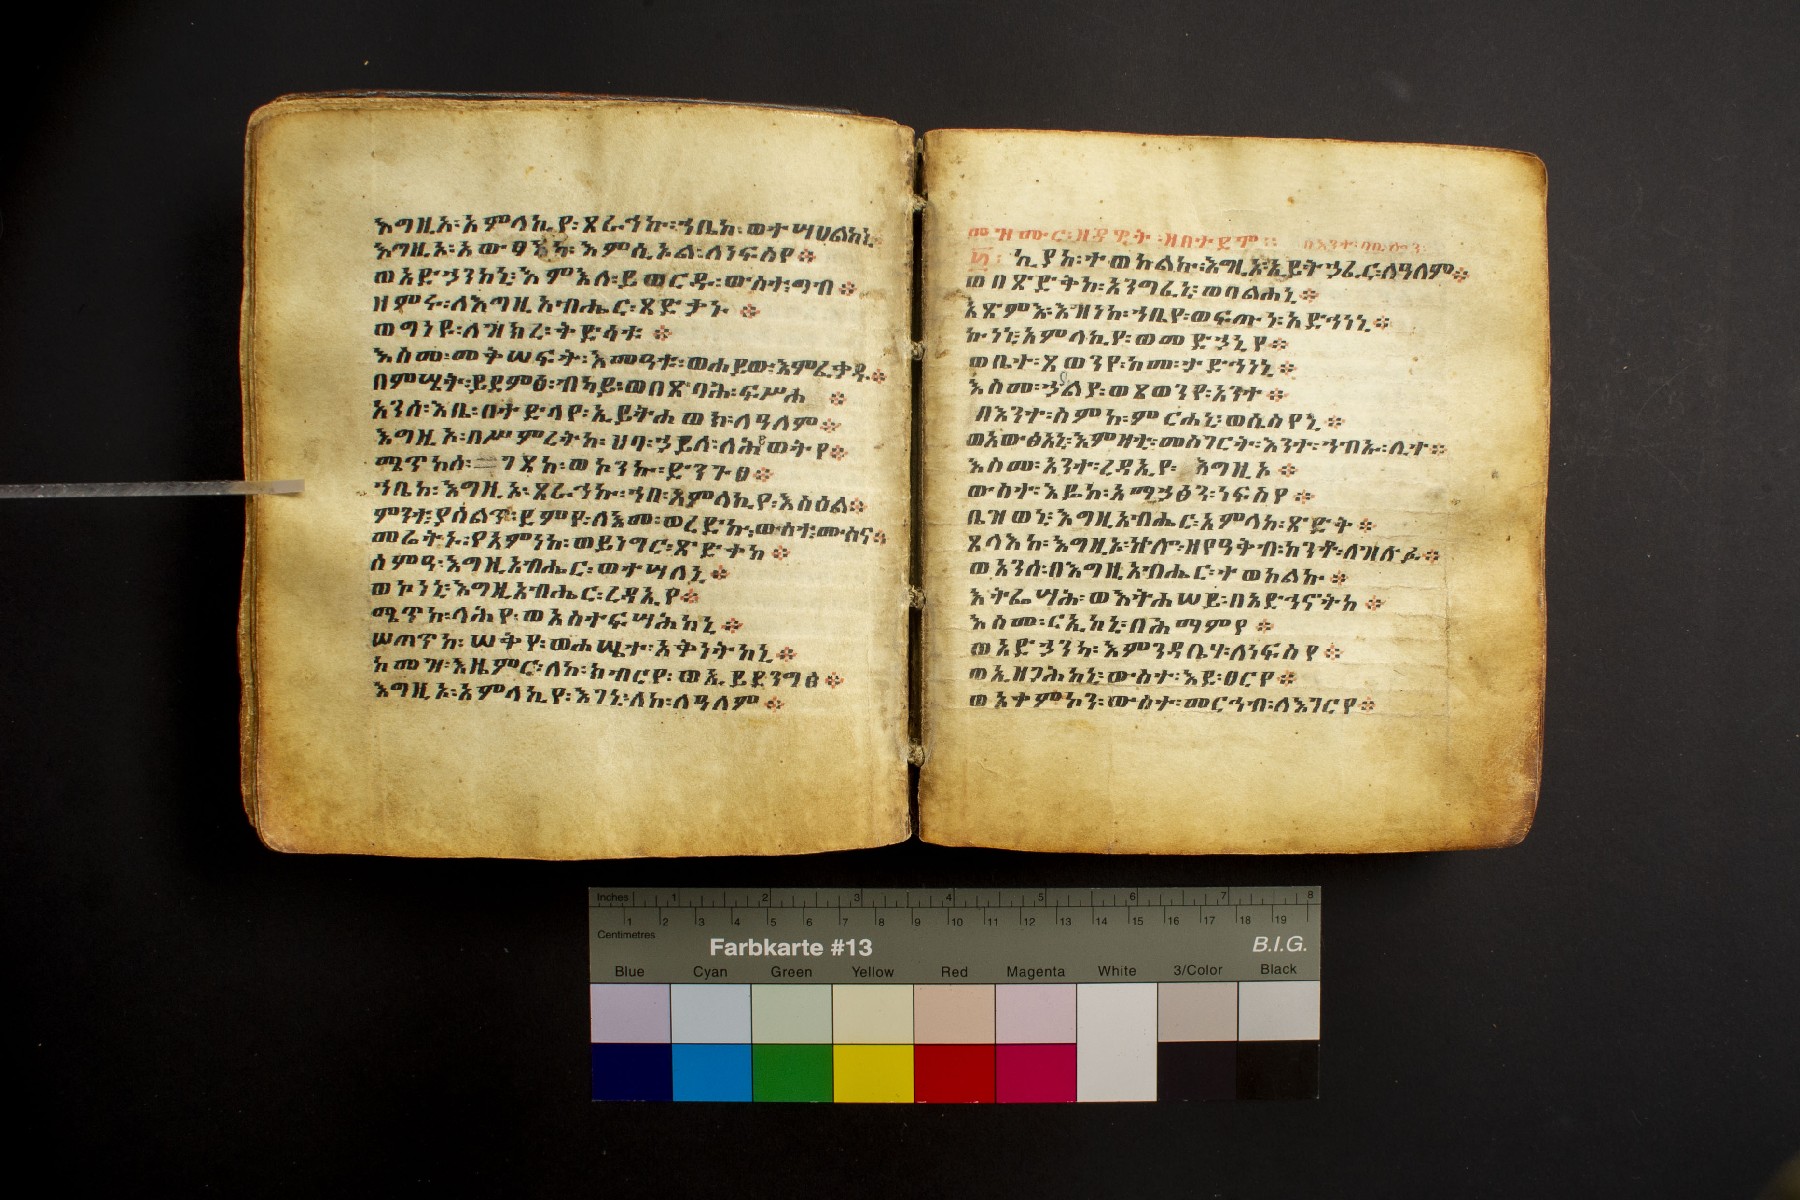 እግዚኦ፡አምላኪየ፡ጸራኅኩ፡ኀቤከ፡ወተሣሀልከኒ
እግዚኦ፡አውፃእካ፡እምሲኦል፡ለነፍስየ፨
ወአድኃንከኒ፡እምእለ፡ይወርዱ፡ውስተ፡ግብ፨
ዘምሩ፡ለእግዚአብሔር፡ጻድታኑ፨
ወግነዩ፡ለዝክረ፡ትድሳቱ፨
እስመ፡መቅሠፍት፡እመዓቱ፡ወሐይው፡እምፈቃዱ፨
በምሴት፡ይደምፅ፡ብካይ፡ወበጽባሕ፡ፍሥሐ፨
አንሰ፡እቤ፡በትድላየ፡ኢይትሐወክ፡ለዓለም፨
እግዚኦ፡በሥምረትከ፡ሀባ፡ኃይለ፡ለሕይወትየ፨
ሜጥከሰ፡ገጸከ፡ወኮንኩ፡ድንጉፀ፨
ኀቤከ፡እግዚኦ፡ጸራኅኩ፡ኀበ፡አምላኪየ፡እስዕል፨
ምንተ፡ያሰልጥ፡ደምየ፡ለእመ፡ወረድኩ፡ውስተ፡ሙስና፨
መሬትኑ፡የአምነከ፡ወይነግር፡ጽድተከ፨
ሰምዓ፡እግዚአብሔር፡ወተሣለኒ፨
ወኮነኒ፡እግዚአብሔር፡ረዳኢየ፨
ሜጥከ፡ላሕየ፡ወአስተፍሣሕከኒ፨
ሠጠጥከ፡ሠቅየ፡ወሐሤተ፡አቅነትከኒ፨
ከመዝ፡እዜምር፡ለከ፡ክብርየ፡ወኢይደንግፅ፨
እግዚኦ፡አምላኪየ፡እገኒ፡ለከ፡ለዓለም፨
መዝሙር፡ዘዳዊት፡ዘበተደም፨
፴ ኪያከ፡ተወከልኩ፡እግዚኦ፡ኢይትኃፈር፡ለዓለም፨
ወበጽድቅከ፡አንግፈኒ፡ወባልሐኒ፨
አጽምእ፡እዝነከ፡ኀቤየ፡ወፍጡነ፡አድኅነኒ፨
ኩነኒ፡አምላኪየ፡ወመድኃኒየ፨
ወቤተ፡ጸወንየ፡ከመ፡ታድኅነኒ፨
እስመ፡ኃይልያ፡ወጸወንየ፡አንተ፨
በእንተ፡ስምከ፡ምርሐኒ፡ወሲስየኒ፨
ወአውፅአኒ፡እምዛቲ፡መስገርት፡እንተ፡ኀብኡ፡ሊተ፨
እስመ፡አንተ፡ረዳኢየ፡እግዚኦ፨
ውስተ፡እዴከ፡አማኃፅን፡ነፍስየ፨
ቤዝወኒ፡እግዚአብሔር፡አምላከ፡ጽድቅ፨
ጸላእከ፡እግዚኦ፡ኵሎ፡ዘየዓቅብ፡ከንቶ፡ለዝሉፉ፨
ወአንሰ፡በእግዚአብሔር፡ተወከልኩ፨
እትፌሣሕ፡ወእትሐሠይ፡በአድኅኖትከ፨
እስመ፡ርኢከኒ፡በሕማምየ፨
ወአድኃንካ፡እምንዳቤሃ፡ለነፍስየ፨
ወኢዘጋሕከኒ፡ውስተ፡እደ፡ፀርየ፨
ወአቀምኮን፡ውስተ፡መርኅብ፡ለእገርየ፨
Inches 1 2 3 4 5 6 7 8
1 2 3 4 5 6 7 8 9 10 11 12 13 14 15 16 17 18 19
Centimetres
Farbkarte #13 B.I.G.
Blue Cyan Green Yellow Red Magenta White 3/Color Black